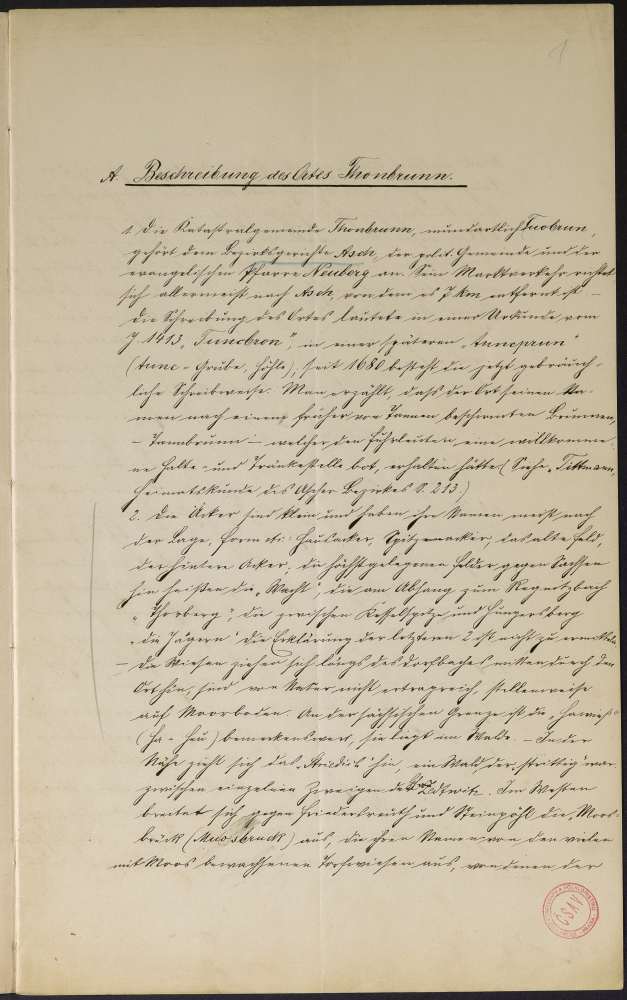 1
A. Beschreibung des Ortes Thonbrunn.
1. Die Katastralgemeinde Thonbrunn, mundartlich Tuobrun,
gehört dem Bezirksgerichte Asch, der polit. Gemeinde und der
evangelischen Pfarre Neuberg an. Sein Marktverkehr richtet
sich allermeist nach Asch, von dem es 7 km entfernt ist. –
Die Schreibung des Ortes lautete in einer Urkunde vom
J. 1413 „Tuncbron", in einer späteren „Tuneprun"
(tunc = Grube, Höhle), seit 1680 besteht die jetzt gebräuch-
liche Schreibweise. Man erzählt, daß der Ort seinen Na-
men nach einem früher von Tannen beschirmten Brunnen,
– Tannbrunn – welcher den Fuhrleuten eine willkomme-
ne Halte- und Tränkestelle bot, erhalten hätte. (Siehe „Tittmann,
Heimatskunde des Ascher Bezirkes S. 213.)
2. Die Äcker sind klein und haben ihre Namen meist nach
der Lage, Form etc: Hausacker, Spitzenacker, das alte Feld,
der hintere Acker; die höchstgelegenen Felder gegen Sachsen
hin heißen die „Wacht", die am Abhang zum Regnitzbach
„Thorberg", die zwischen Kesselspitze und Hungersberg
„die Jägern". Die Erklärung der letztern 2 ist nicht zu ermitteln.
– Die Wiesen ziehen sich längs des Dorfbaches mitten durch den
Ort hin, sind von Natur nicht ertragreich, stellenweise
auf Moorboden. An der sächsischen Grenze ist die „Hawies"
(Ha = Heu) bemerkenswert, sie liegt im Walde. – In der
Nähe zieht sich das hin, ein Wald, der strittig war
zwischen einzelnen Zweigen der Zedtwitz. Im Westen
breitet sich gegen Friedersreuth und Steinpöhl die Moos-
brück (Muosbruck) aus, die ihren Namen von den vielen
mit Moos bewachsenen Torfwiesen aus, von denen der
ČSAV